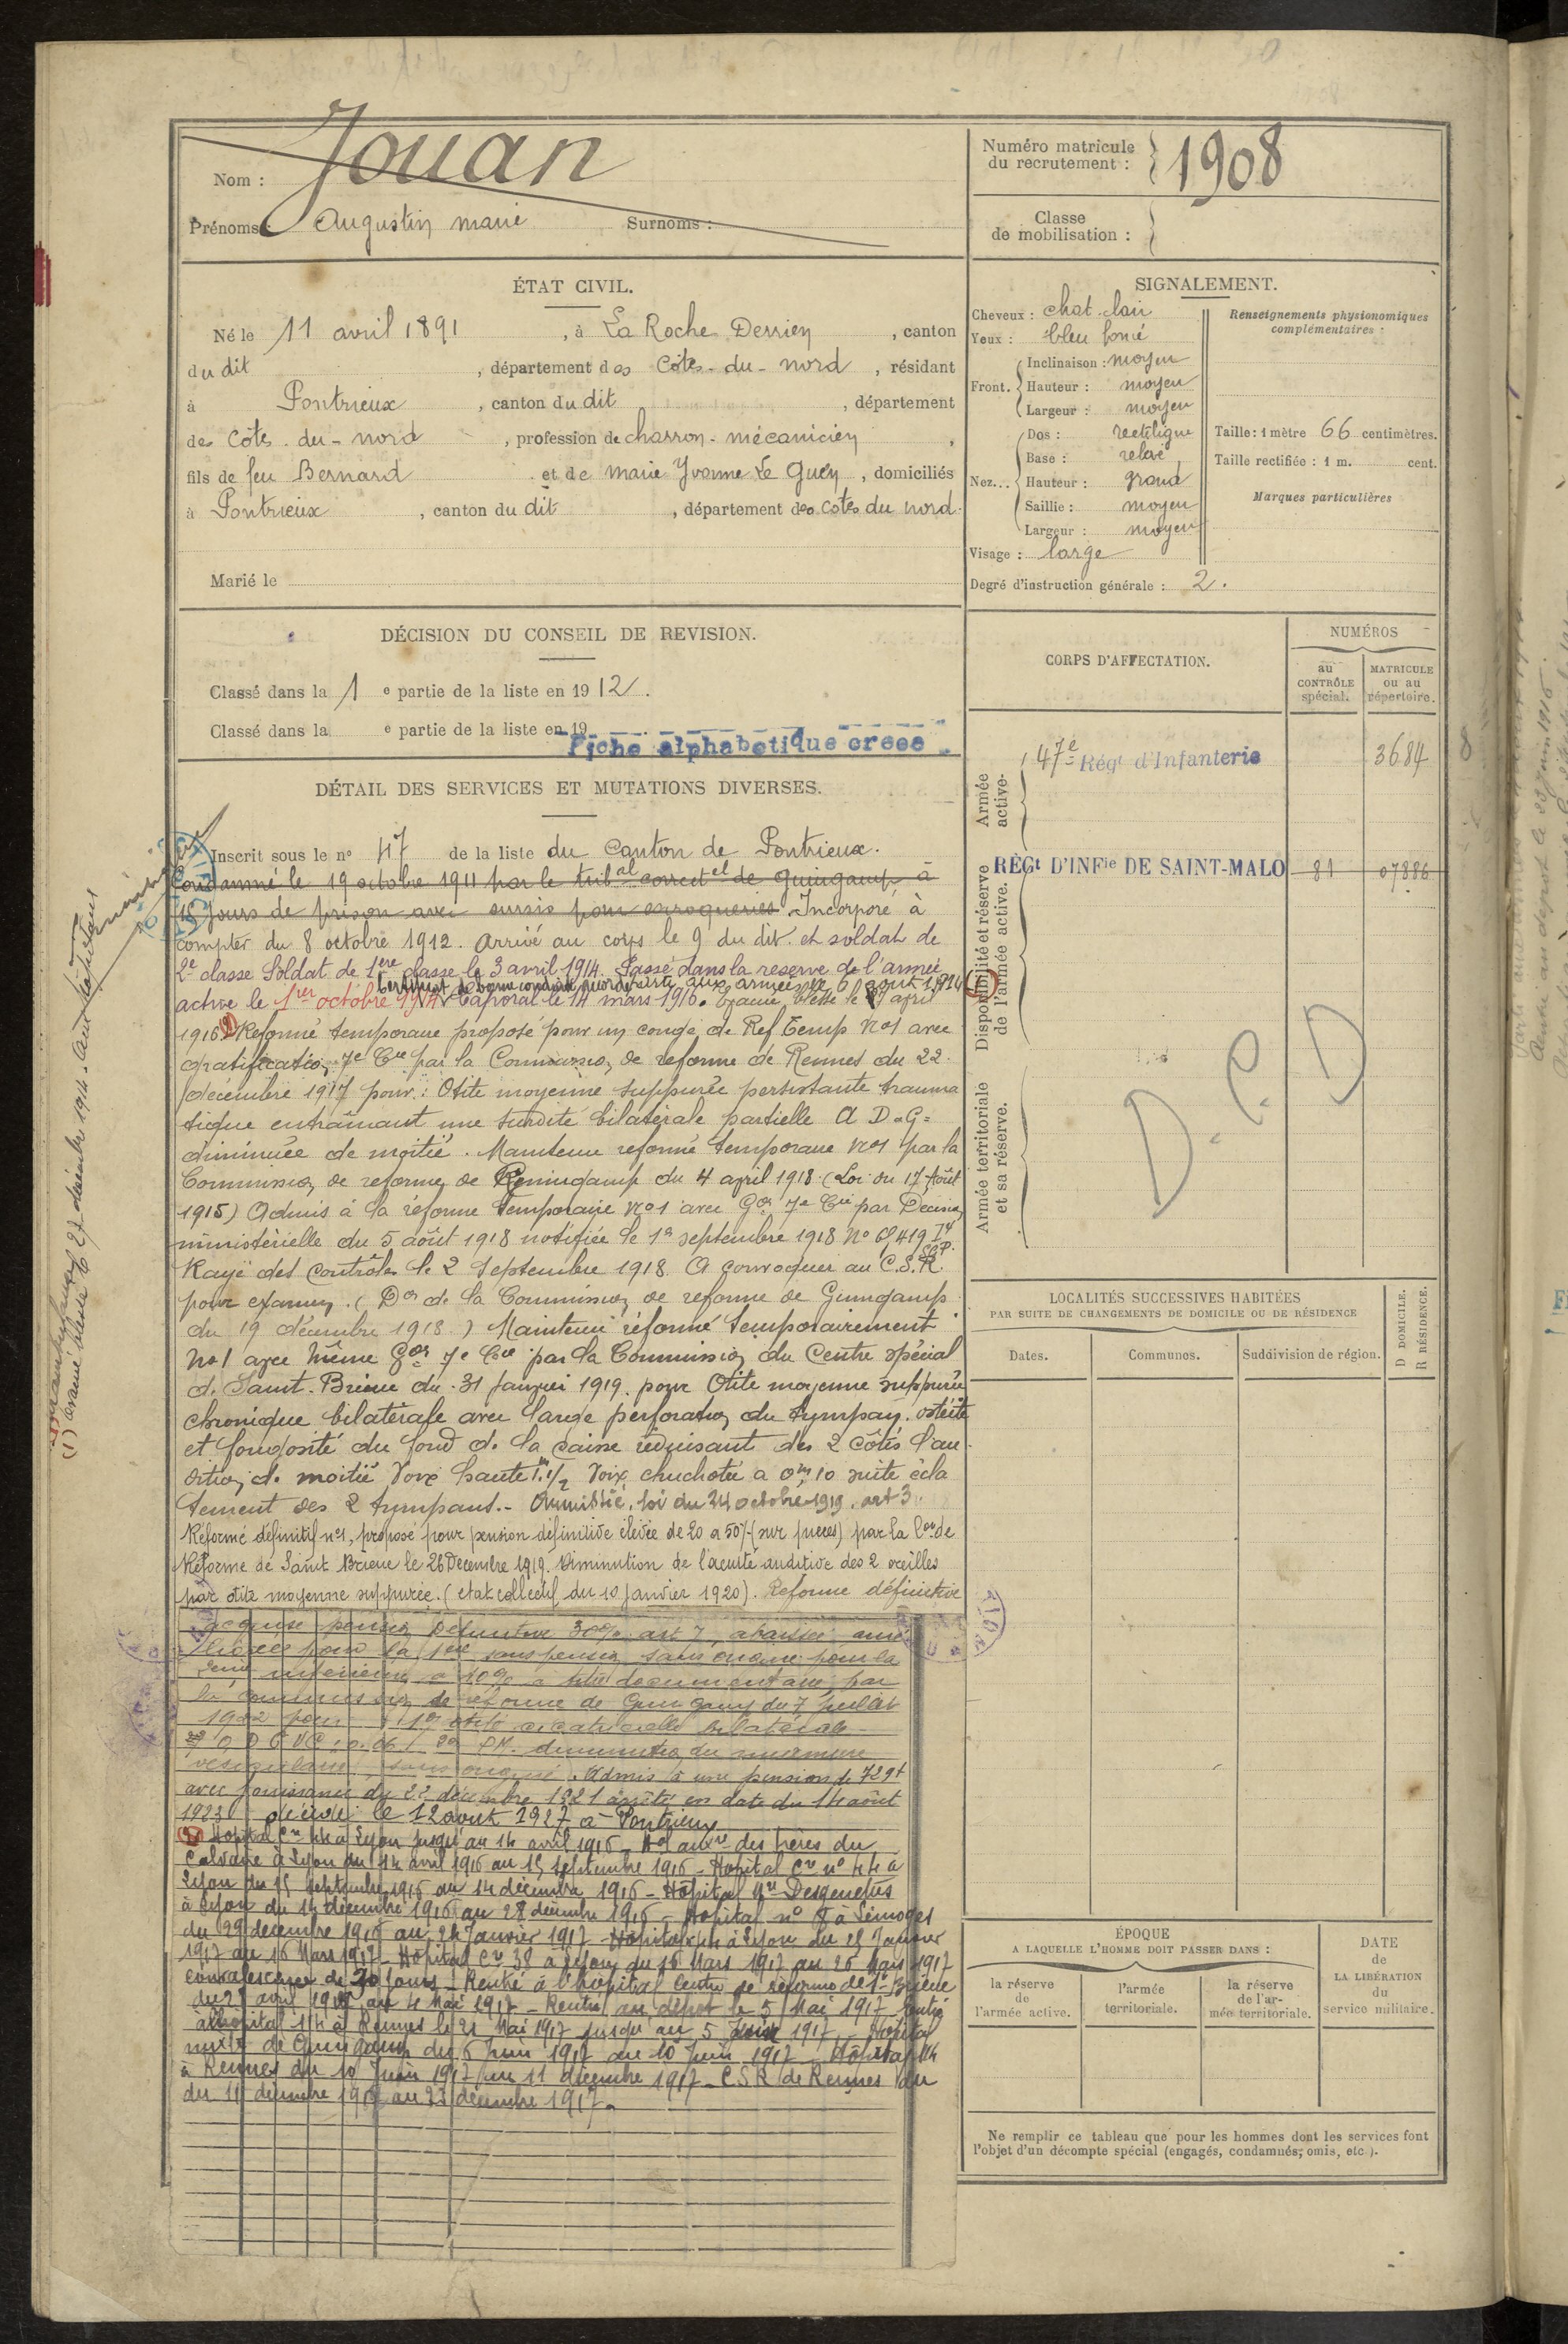 Nom : Jouan
Prénoms : Augustin marie Surnoms :
Numéro matricule
du recrutement : 1908
Classe
de mobilisation :
ÉTAT CIVIL.
Né le 11 avril 1891, à La Roche Derrien, canton
du dit, département des Côtes-du-nord, résidant
à Pontrieux, canton du dit, département
des Côtes-du-nord, profession de charron-mécanicien,
fils de feu Bernard et de marie Yvonne Le Guen, domiciliés
à Pontrieux, canton du dit, département des Côtes du nord.
Marié le
SIGNALEMENT.
Cheveux : chat. clair
Yeux : bleu foncé
Front. Inclinaison : moyen
Hauteur : moyen
Largeur : moyen
Nez... Dos : rectiligne
Base : relevé
Hauteur : grand
Saillie : moyen
Largeur : moyen
Visage : large
Renseignements physionomiques
complémentaires :
Taille : 1 mètre 66 centimètres.
Taille rectifiée : 1 m. cent.
Marques particulières
Degré d'instruction générale : 2.
DÉCISION DU CONSEIL DE REVISION.
Classé dans la 1e partie de la liste en 1912.
Classé dans la e partie de la liste en 19
Fiche alphabétique créée
DÉTAIL DES SERVICES ET MUTATIONS DIVERSES.
Inscrit sous le n° 47 de la liste du Canton de Pontrieux.
Condamné le 19 octobre 1911 par le tribal correctel de Guingamp à
15 jours de prison avec sursis pour escroqueries. Incorporé à
compter du 8 octobre 1912. Arrivé au corps le 9 du dit. et soldat de
2e classe Soldat de 1ère classe le 3 avril 1914. Passé dans la réserve de l'armée
Certificat de bonne conduite accordé. Parti aux armées le 6 août 1914 (1)
active le 1er octobre 1914. Caporal le 14 mars 1916. blessé le avril
1916 (2) Réformé temporaire proposé pour un congé de Ref Temp N°1 avec
gratification 7e Cie par la Commission de réforme de Rennes du 22
décembre 1917 pour : Otite moyenne suppurée persistante trauma
tique entraînant une surdité bilatérale partielle A D=G=
diminuée de moitié. Maintenu réformé temporaire N°1 par la
Commission de réforme de Guingamp du 4 avril 1918 (Loi du 17 Août
1915) Admis à la réforme Temporaire N°1 avec Gon 7e Cie par Décision
ministérielle du 5 août 1918 notifiée le 1er septembre 1918 N°
Rayé des Contrôles le 2 Septembre 1918. A convoquer au C.S.R.
pour examen. (Don de la Commission de réforme de Guingamp
du 19 décembre 1918.) Maintenu réformé temporairement
N°1 avec même Gon 7e Cie par la Commission du Centre spécial
de Saint-Brieuc du 31 janvier 1919. pour Otite moyenne suppurée
chronique bilatérale avec large perforation du tympan. ostéite
et fongosité du fond de la caisse réduisant des 2 côtés l'au
dition de moitié Voix haute 1m 1/2 Voix chuchotée a 0m,10 suite écla
tement des 2 tympans.- Amnistié, loi du 24 octobre 1919, art 3
Réformé définitif n°1, proposé pour pension définitive élevée de 20 à 50% (sur pièces) par la Con de
Réforme de Saint Brieuc le 26 Décembre 1919. Diminution de l'acuité auditive des 2 oreilles
par otite moyenne suppurée. (état collectif du 10 janvier 1920). Réforme définitive
acquise pension Définitive 30% art 7
pour la 1ère sans pension sans origine pour la
2eme inférieure à 10% à titre documentaire par
la commission de réforme de Guingamp du 7 juillet
1922 pour 1er otite cicatricielle bilatérale
diminution du murmure
vésiculaire, sans origine. Admis à une pension de 729f
avec jouissance du 22 décembre 1921 arrêté en date du 14 août
1923 décédé le 12 août 1927 à Pontrieux
(2) Hôpital Cre 44 à Lyon jusqu'au 14 avril 1916 - des frères du
Calvaire à Lyon du 14 avril 1916 au 15 septembre 1916 - Hôpital Cre n° 44 à
Lyon du 15 septembre 1916 au 14 décembre 1916 - Hôpital Mre Desgenettes
à Lyon du 14 décembre 1916 au 28 décembre 1916 - Hôpital n° 8 à Limoges
du 29 décembre 1916 au 24 Janvier 1917 - Hôpital à Lyon du 25 Janvier
1917 au 16 Mars 1917 - Hôpital Cre 38 à Lyon du 16 Mars 1917 au 26 Mars 1917
convalescence de 30 jours - Rentré à l'hôpital Centre de réforme de St-Brieuc
du 28 avril 1917 au 4 Mai 1917 - Rentré au dépôt le 5 Mai 1917 Entré
à l'hôpital 114 à Rennes le 21 Mai 1917 jusqu'au 5 Juin 1917 - Hôpital
mixte de Guingamp du 6 juin 1917 au 10 juin 1917 - Hôpital 114
à Rennes du 10 Juin 1917 au 11 décembre 1917 - CSR de Rennes
du 11 décembre 1917 au 23 décembre 1917.
(1) Evacué blessé le 27 décembre 1914. Aux armées
CORPS D'AFFECTATION.
NUMÉROS
au
CONTRÔLE
spécial.
MATRICULE
ou au
répertoire.
Armée
active.
47e Régt d'Infanterie 3684
Disponibilité et réserve
de l'armée active.
RÉGt D'INFie DE SAINT-MALO 81 07886
Armée territoriale
et sa réserve.
D.C.D
LOCALITÉS SUCCESSIVES HABITÉES
PAR SUITE DE CHANGEMENTS DE DOMICILE OU DE RÉSIDENCE
D DOMICILE.
R RÉSIDENCE.
Dates. Communes. Subdivision de région.
ÉPOQUE
A LAQUELLE L'HOMME DOIT PASSER DANS :
la réserve
de
l'armée active.
l'armée
territoriale.
la réserve
de l'ar-
mée territoriale.
DATE
de
LA LIBÉRATION
du
service militaire.
Ne remplir ce tableau que pour les hommes dont les services font
l'objet d'un décompte spécial (engagés, condamnés, omis, etc.).